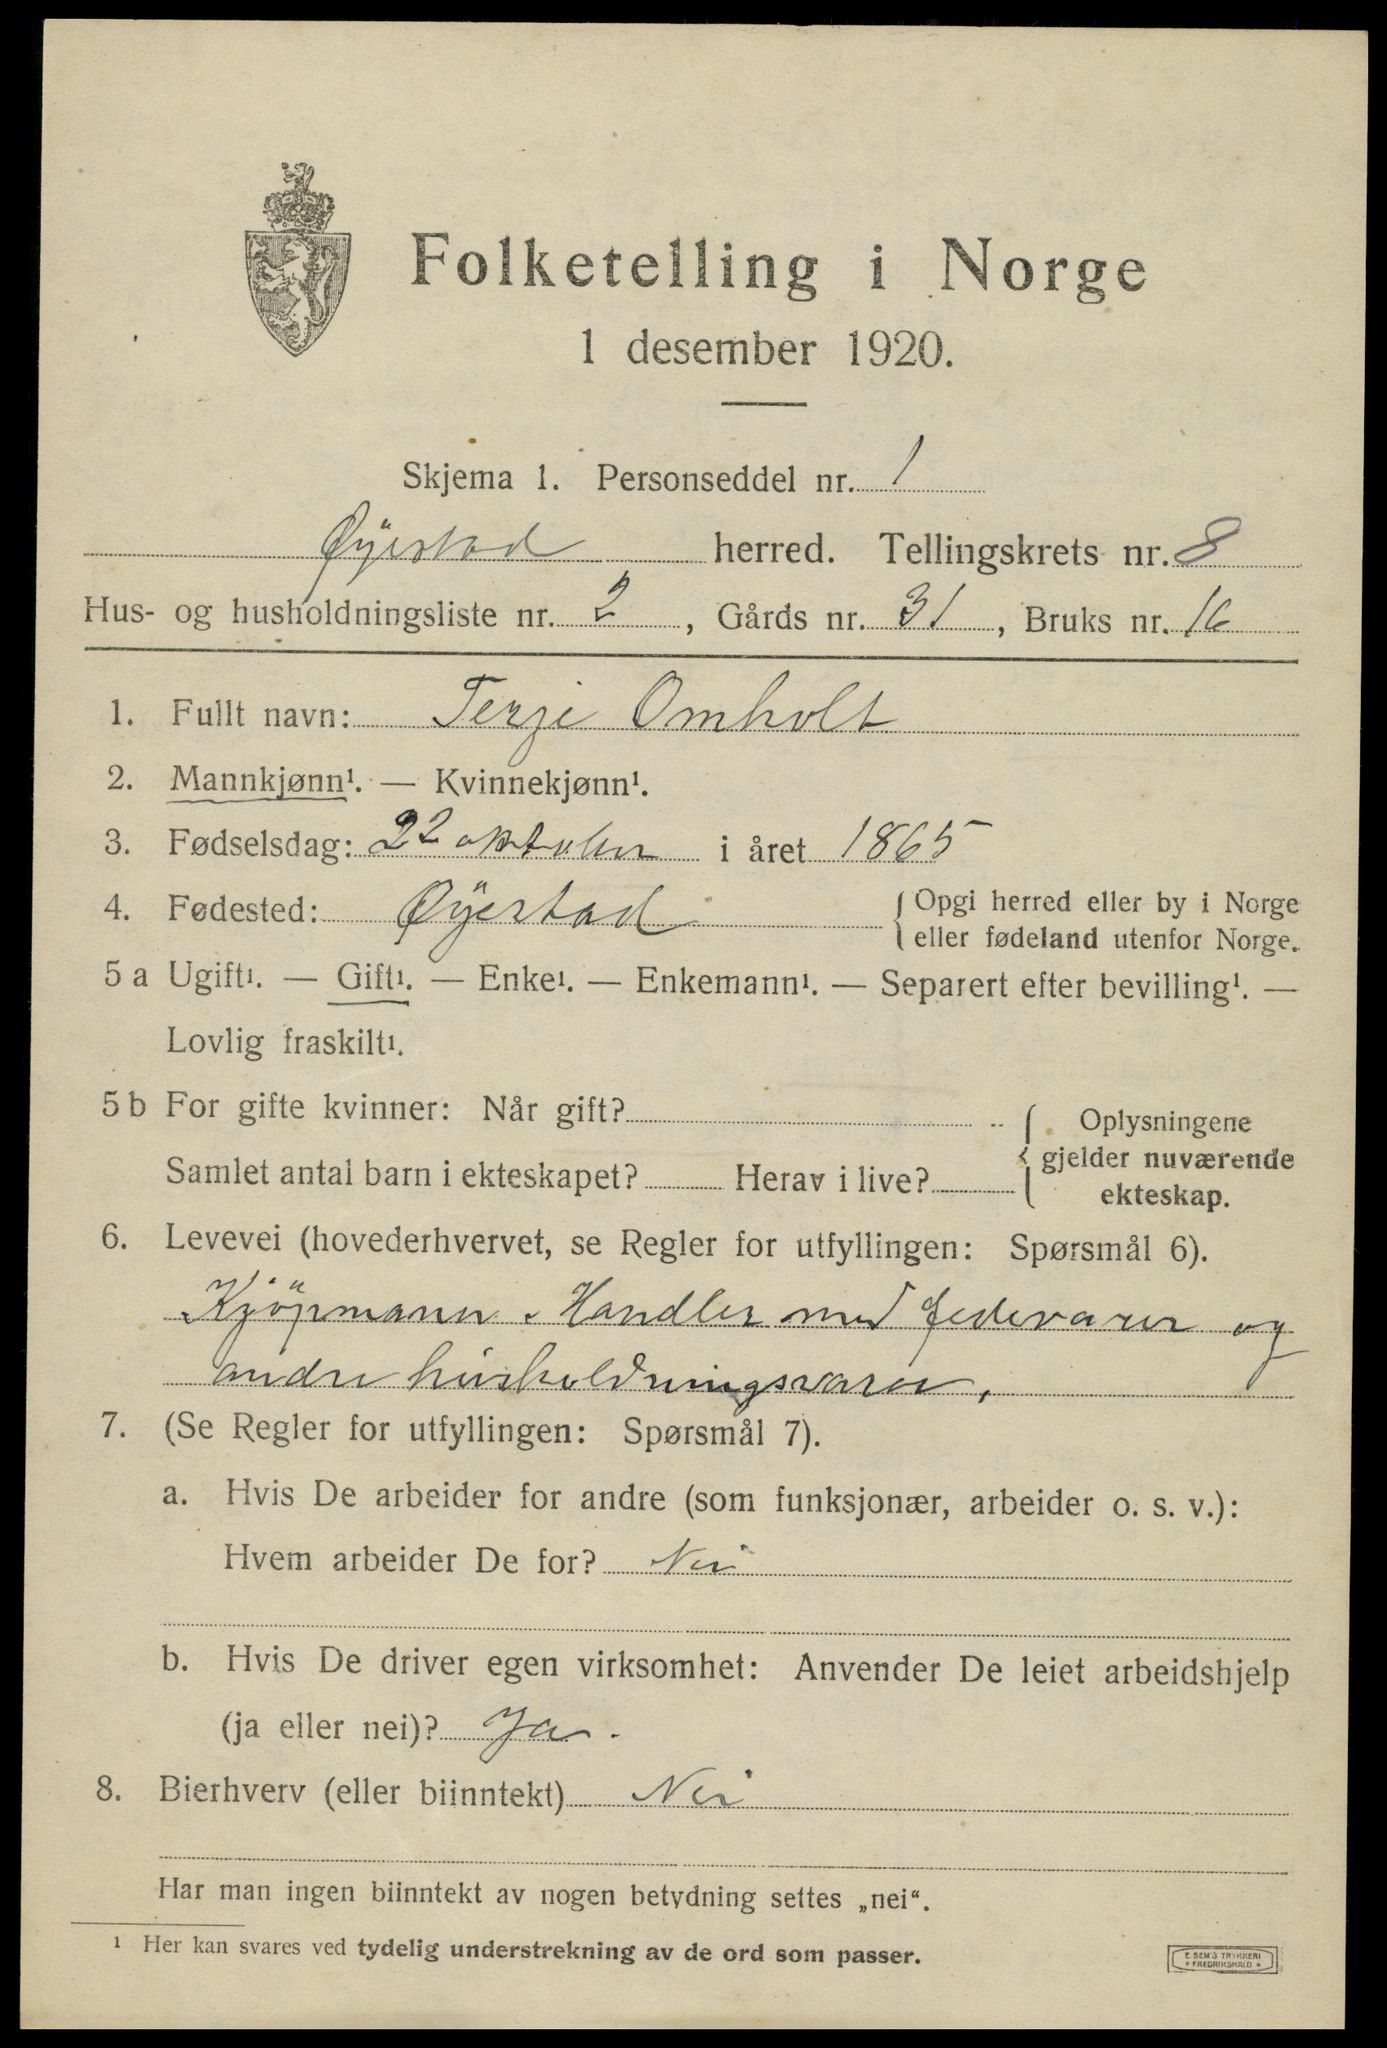 Folketelling i Norge
1 desember 1920.
Skjema 1. Personseddel nr. 1
Øyestad herred. Tellingskrets nr. 8
Hus- og husholdningsliste nr. 2, Gårds nr. 31, Bruks nr. 16
1. Fullt navn: Terje Omholt
2. Mannkjønn¹. — Kvinnekjønn¹.
3. Fødselsdag: 22 oktober i året 1865
4. Fødested: Øyestad { Opgi herred eller by i Norge
eller fødeland utenfor Norge.
5 a Ugift¹. — Gift¹. — Enke¹. — Enkemann¹. — Separert efter bevilling¹. —
Lovlig fraskilt¹.
5 b For gifte kvinner: Når gift? { Oplysningene
gjelder nuværende
Samlet antal barn i ekteskapet? Herav i live?
ekteskap.
6. Levevei (hovederhvervet, se Regler for utfyllingen: Spørsmål 6).
Kjöpmann. Handler med fedevarer og
andre husholdningsvarer.
7. (Se Regler for utfyllingen: Spørsmål 7).
a. Hvis De arbeider for andre (som funksjonær, arbeider o. s. v.):
Hvem arbeider De for? Nei
b. Hvis De driver egen virksomhet: Anvender De leiet arbeidshjelp
(ja eller nei)? Ja.
8. Bierhverv (eller biinntekt) Nei
Har man ingen biinntekt av nogen betydning settes „nei“.
¹ Her kan svares ved tydelig understrekning av de ord som passer.
E. SEM'S TRYKKERI
* FREDRIKSHALD *